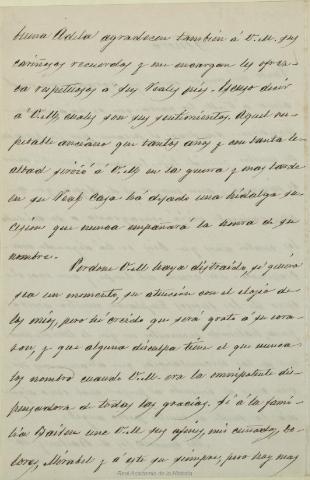 buena Adela agradecen también á V.M. sus
cariñosos recuerdos y me encargan les ofrez-
ca respetuosos á sus Reales piés. Escuso decir
á V.M. cuales son sus sentimientos. Aquel res-
petable anciano que tantos años y con tanta le-
altad sirvió á V.M. en la guerra y mas tarde
en su Real Casa há dejado una hidalga su-
cesión que nunca empañará la honra de su
nombre.
Perdone V.M. haya distraido, si quiera
sea un momento, su atención con el elojio de
los mios, pero hé creido que será grato á su cora-
zon, y que alguna disculpa tiene el que nunca
los nombró cuando V.M. era la omnipotente dis-
pensadora de todas las gracias. Si á la fami-
lia Bailen une V.M. sus afines, mis cuñados, Do-
lores, Mirabel y á este su siempre, pero hoy mas
Real Academia de la Historia